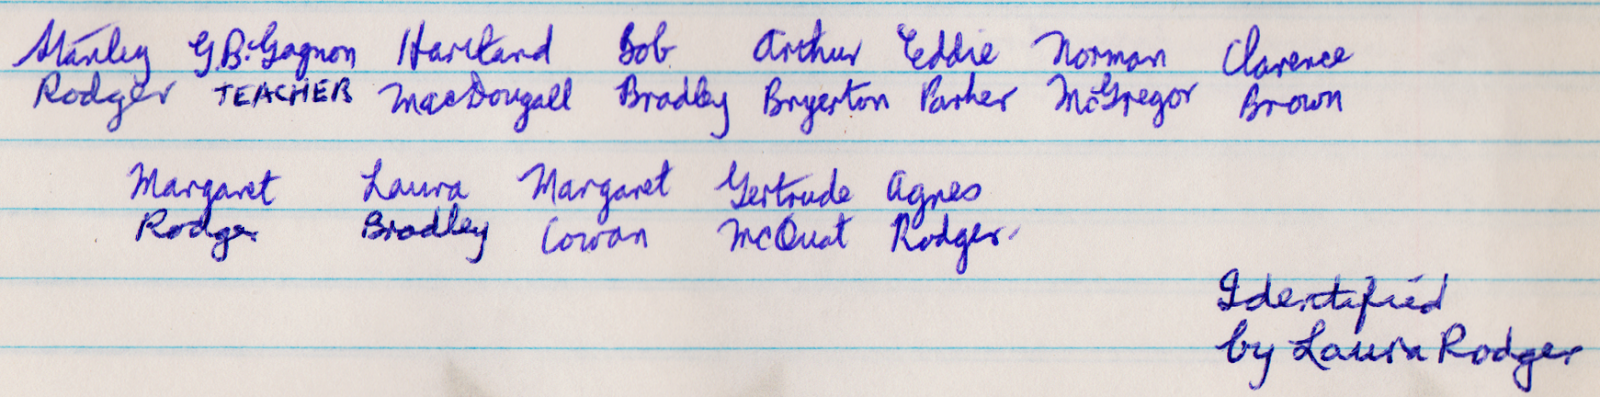 Stanley G.B. Gagnon Hartland Bob Arthur Eddie Norman Clarence
Rodger TEACHER MacDougall Bradley Bryerton Parker McGregor Brown
Margaret Laura Margaret Gertrude Agnes
Rodger Bradley Cowan McQuat Rodger
Identified
by Laura Rodger